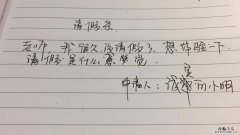 请假条
老师，我很久没请假了，想体验一下
请假是什么感觉
申请人：诚实的小明